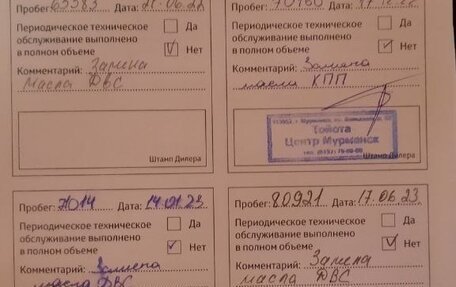 Пробег: 65583 Дата: 21.06.22
Периодическое техническое
обслуживание выполнено
в полном объеме
Да
Нет
Комментарий: Замена
масла ДВС
Штамп Дилера
Пробег: Дата:
Периодическое техническое
обслуживание выполнено
в полном объеме
Да
Нет
Комментарий: Замена
масла КПП
Тойота
Центр Мурманск
Штамп Дилера
Пробег: Дата: 14.01.23
Периодическое техническое
обслуживание выполнено
в полном объеме
Да
Нет
Комментарий: Замена
масла ДВС
Пробег: 80921 Дата: 17.06.23
Периодическое техническое
обслуживание выполнено
в полном объеме
Да
Нет
Комментарий: Замена
масла ДВС